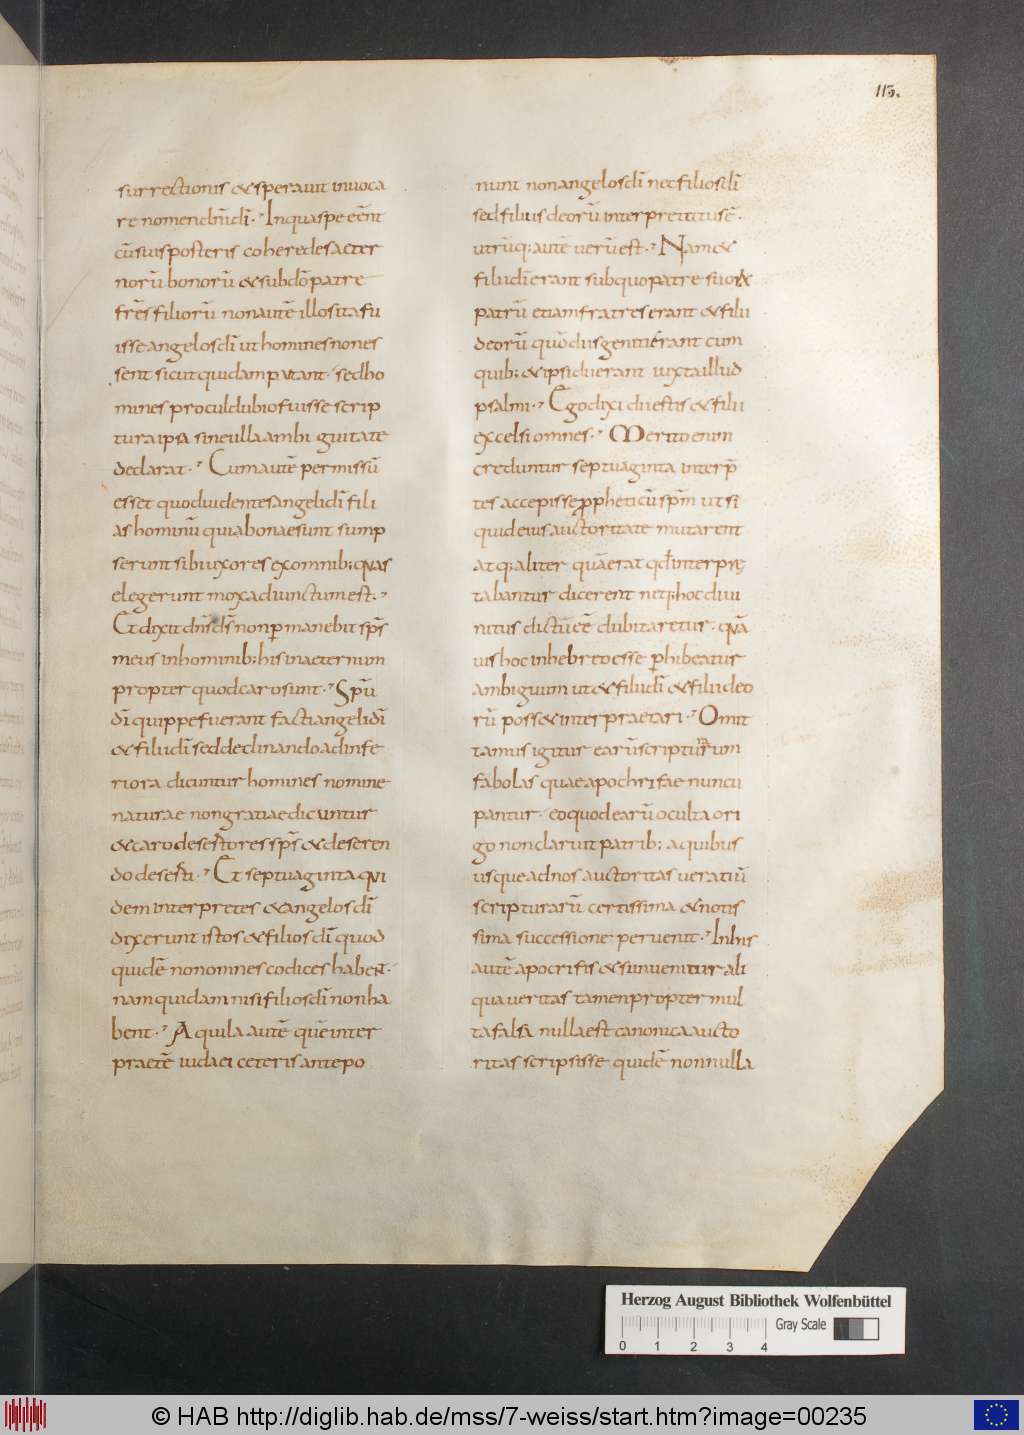 115.
surrectionis &sperauit inuoca
re nomen dn̄i dī. In qua spe eēnt
cū suis posteris coheredes aeter
norū bonorū & sub dō patre
frēs filiorū non autē illos ita fu
isse angelos dī ut homines non es
sent sicut quidam putant. sed ho
mines procul dubio fuisse scrip
tura ipsa sine ulla ambiguitate
declarat. Cum autē permissū
esset quod uidentes angeli dī fili
as hominū quia bonae sunt sump
serunt sibi uxores ex omnib; quas
elegerunt mox adiunctum est.
Et dixit dn̄s ds̄ non ꝑmanebit sps̄
meus in hominib; his in aeternum
propter quod caro sunt. Spū
dī quippe fuerant facti angeli dī
& filii dī sed declinando ad infe
riora dicuntur homines nomine
naturae non gratiae dicuntur
& caro desertores sps̄ & deseren
do deserti. Et septuaginta qui
dem interpretes & angelos dī
dixerunt istos & filios dī quod
quidē non omnes codices habent.
nam quidam nisi filios dī non ha
bent. Aquila autē quē inter
praetē iudaei ceteris antepo
nunt non angelos dī nec filios dī
sed filius deorū interpretatus ē.
utrūq; autē uerū est. Nam &
filii dī erant sub quo patre suorum
patrū etiam fratres erant & filii
deorū quō diis geniti erant cum
quib; & ipsi dii erant iuxta illud
psalmi. Ego dixi dii estis & filii
excelsi omnes. Merito enim
creduntur septuaginta interp̄
tes accepisse ꝓpheticū spm̄ ut si
quid eius auctoritate mutarent
atq; aliter quā erat qđ interprę
tabantur dicerent neq; hoc diui
nitus dictū eē dubitaretur. quā
uis hoc in hebreo esse ꝑhibeatur
ambiguum ut & filii dī & filii deo
rū poss& interpraetari. Omit
tamus igitur earū scripturarum
fabolas quae apochrifae nuncu
pantur. eo quod earū oculta ori
go non claruit patrib; a quibus
usque ad nos auctoritas ueratiū
scripturarū certissima & notis
sima successione peruenit. In his
autē apocrifis & si inuenitur ali
qua ueritas tamen propter mul
ta falsa nulla est canonica aucto
ritas scripsisse quidē nonnulla
Herzog August Bibliothek Wolfenbüttel
0 1 2 3 4 Gray Scale
© HAB http://diglib.hab.de/mss/7-weiss/start.htm?image=00235